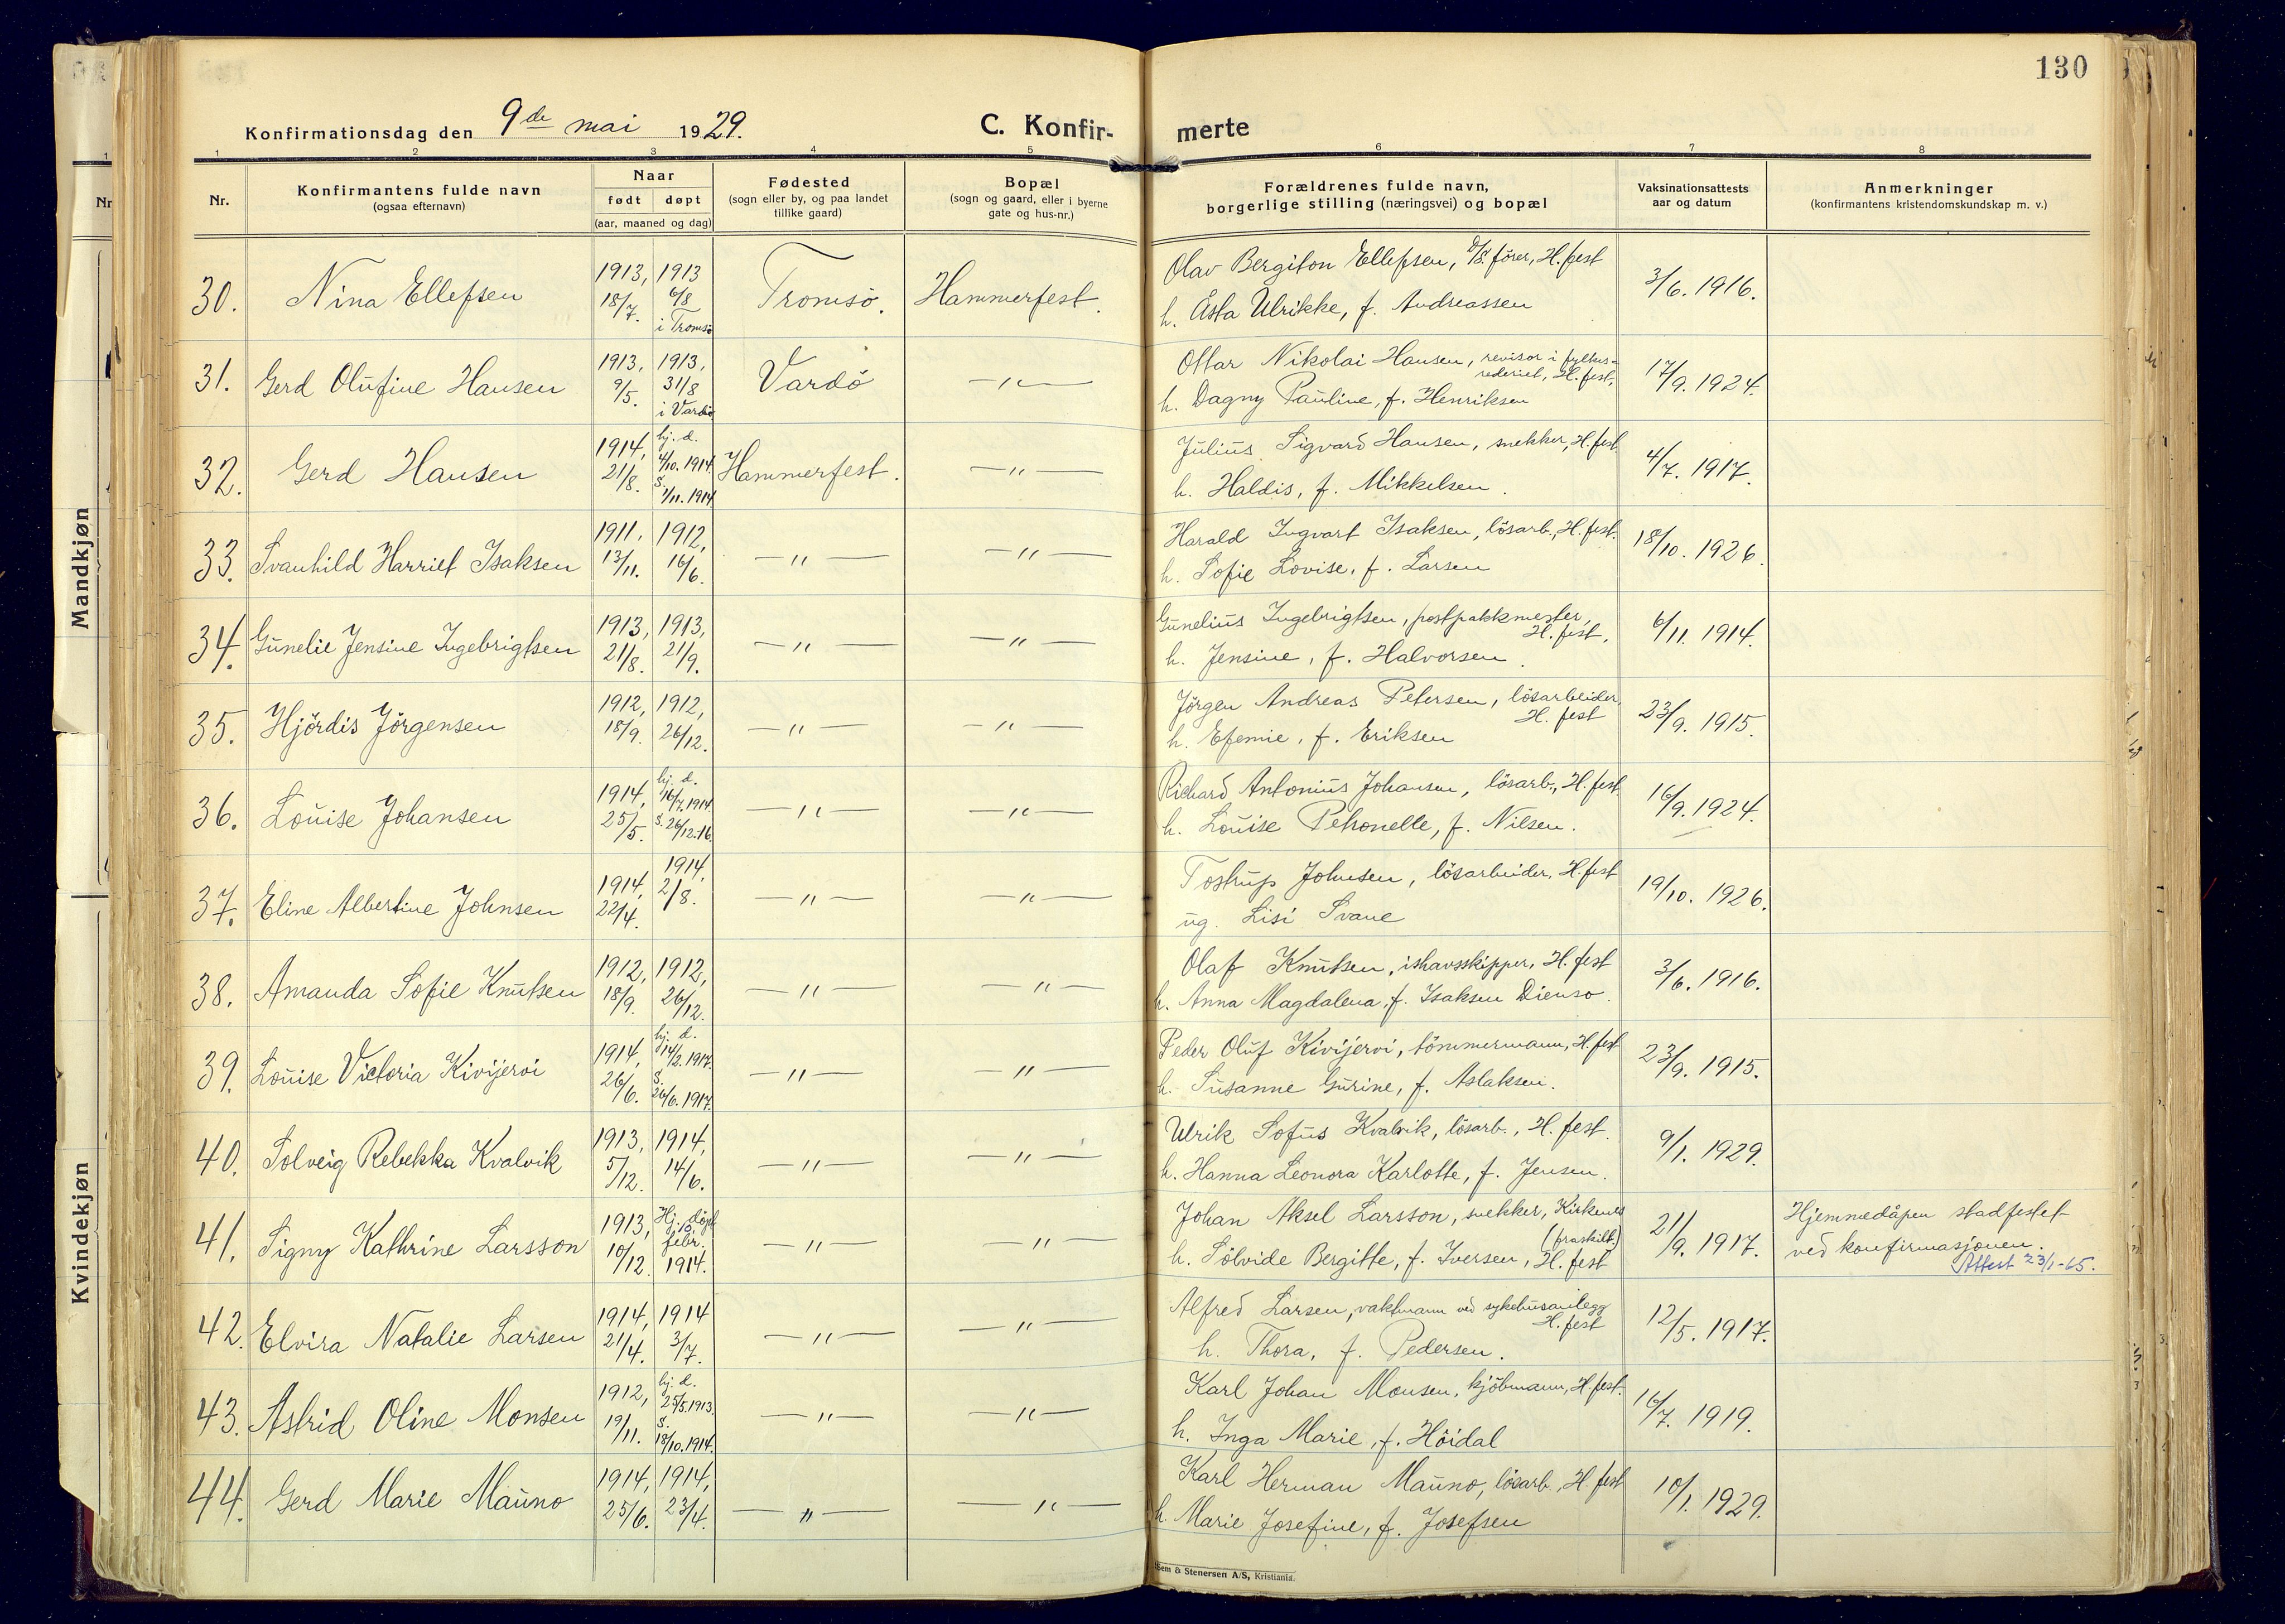 130
Konfirmationsdag den 9de mai 1929.
C. Konfir-
merte
1 2 3 4 5 6 7 8
Nr.
Konfirmantens fulde navn
(ogsaa efternavn)
Naar
født døpt
(aar, maaned og dag)
Fødested
(sogn eller by, og paa landet
tillike gaard)
Bopæl
(sogn og gaard, eller i byerne
gate og hus-nr.)
Forældrenes fulde navn,
borgerlige stilling (næringsvei) og bopæl
Vaksinationsattests
aar og datum
Anmerkninger
(konfirmantens kristendomskundskap m. v.)
Mandkjøn
Kvindekjøn
30. Nina Ellefsen 1913, 18/7. 1913 6/8 i Tromsö Tromsö. Hammerfest.
Olav Bergiton Ellefsen, D/S. förer, H.fest
h. Åsta Ulrikke, f. Andreassen
3/6. 1916.
31. Gerd Olufine Hansen 1913, 9/5. 1913, 31/8 i Vardö Vardö —"—
Ottar Nikolai Hansen, revisor i fylkes-
rederiet, H.fest.
h. Dagny Pauline, f. Henriksen
17/9. 1924.
32. Gerd Hansen 1914, 21/8. hj. d. 4/10. 1914 s. 1/11. 1914 Hammerfest. —"—
Julius Sigvard Hansen, snekker, H.fest
h. Haldis, f. Mikkelsen.
4/7. 1917.
33. Svanhild Harriet Isaksen 1911, 13/11. 1912, 16/6. —"— —"—
Harald Ingvart Isaksen, lösarb., H.fest.
h. Sofie Lovise, f. Larsen
18/10. 1926.
34. Gunelie Jensine Ingebrigtsen 1913, 21/8. 1913, 21/9. —"— —"—
Gunelius Ingebrigtsen, postpakkmester,
H.fest.
h. Jensine, f. Halvorsen.
6/11. 1914.
35. Hjördis Jörgensen 1912, 18/9. 1912, 26/12. —"— —"—
Jörgen Andreas Petersen, lösarbeider,
H. fest
h. Efemie, f. Eriksen
23/9. 1915.
36. Louise Johansen 1914, 25/5. hj. d. 16/7. 1914 s. 26/12.16. —"— —"—
Richard Antonius Johansen, lösarb., H.fest.
h. Louise Petronelle, f. Nilsen.
16/9. 1924.
37. Eline Albertine Johnsen 1914, 22/4. 1914. 2/8. —"— —"—
Tostrup Johnsen, lösarbeider, H.fest
ug. Lisi Svane
19/10. 1926.
38. Amanda Sofie Knutsen 1912, 18/9. 1912, 26/12. —"— —"—
Olaf Knutsen, ishavsskipper, H.fest
h. Anna Magdalena, f. Isaksen Dienso.
3/6. 1916.
39. Louise Victoria Kivijervi 1914, 26/6. hj. d. 14/2. 1917. s. 26/6. 1917. —"— —"—
Peder Oluf Kivijervi, tömmermann, H.fest
h. Susanne Gurine, f. Aslaksen.
23/9. 1915.
40. Solveig Rebekka Kvalvik 1913, 5/12. 1914, 14/6. —"— —"—
Ulrik Sofus Kvalvik, lösarb., H. fest.
h. Hanna Leonora Karlotte, f. Jensen.
9/1. 1929.
41. Signy Kathrine Larsson 1913, 10/12. Hj. döpt febr. 1914. —"— —"—
Johan Aksel Larsson, snekker, Kirkenes
(fraskilt.)
h. Sölvide Bergitte, f. Iversen, H. fest
21/9. 1917.
Hjemmedåpen stadfestet
ved konfirmasjonen.
Attest 23/1-65.
42. Elvira Natalie Larsen 1914, 21/4. 1914 3/7. —"— —"—
Alfred Larsen, vaktmann ved sykehusanlegg
H.fest
h. Thora, f. Pedersen.
12/5. 1917.
43. Astrid Oline Monsen 1912, 19/11. hj. d. 25/5.1913. s. 18/10.1914. —"— —"—
Karl Johan Monsen, kjöbmann, H.fest.
h. Inga Marie, f. Höidal
16/7. 1919.
44. Gerd Marie Mauno 1914, 25/6. 1914, 23/4. —"— —"—
Karl Herman Mauno, lösarb., H.fest
h. Marie Josefine, f. Josefsen
10/1. 1929.
Sem & Stenersen A/S, Kristiania.